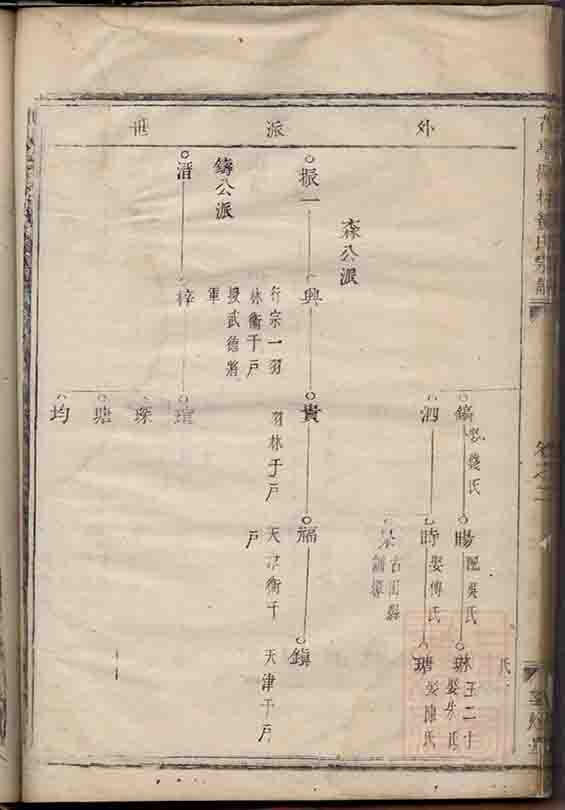 外派世
氏
鎬
娶錢氏
暘
配吳氏
琳
王二十
娶朱氏
泗
時
娶傅氏
瑭
娶陳氏
杲
古田縣
森公派
振一
興
行宗一羽
林衛千戶
授武德將
軍
貴
羽林千戶
福
天津衛千
戶
鎮
天津千戶
鑄公派
濳
梓
瑄
琛
瑭
均
卷之二